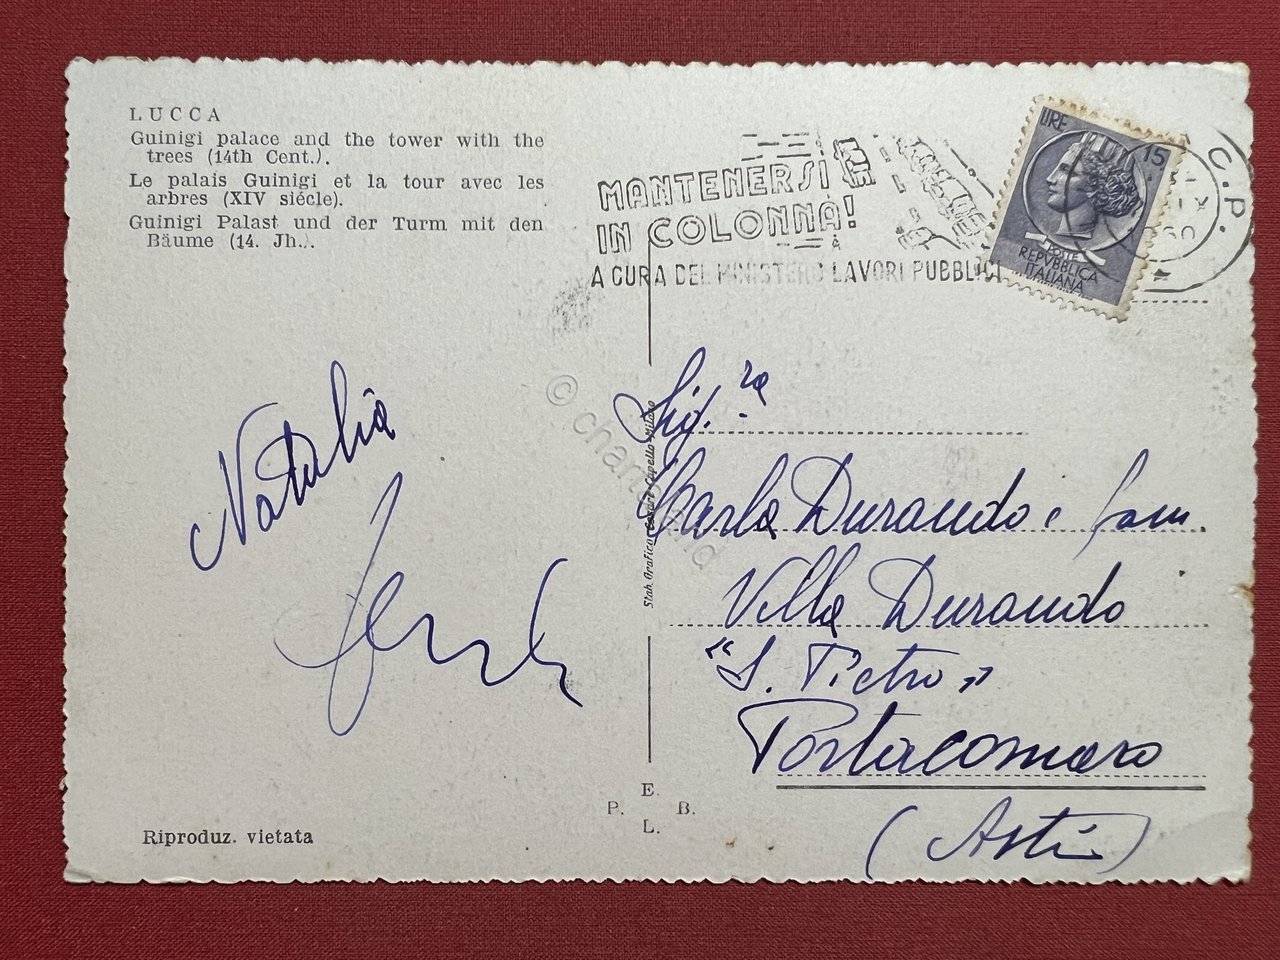 LUCCA
Guinigi palace and the tower with the
trees (14th Cent.).
Le palais Guinigi et la tour avec les
arbres (XIV siécle).
Guinigi Palast und der Turm mit den
Bäume (14. Jh.).
MANTENERSI
IN COLONNA!
A CURA DEL MINISTERO LAVORI PUBBLICI
LIRE 15
POSTE
REPVBBLICA
ITALIANA
C.P.
Natalia
Sig.ra
Carla Durando e fam.
Villa Durando
"S. Pietro"
Portacomaro
(Asti)
Stab. Grafico Cesare Capello - Milano
E.
P. B.
L.
Riproduz. vietata